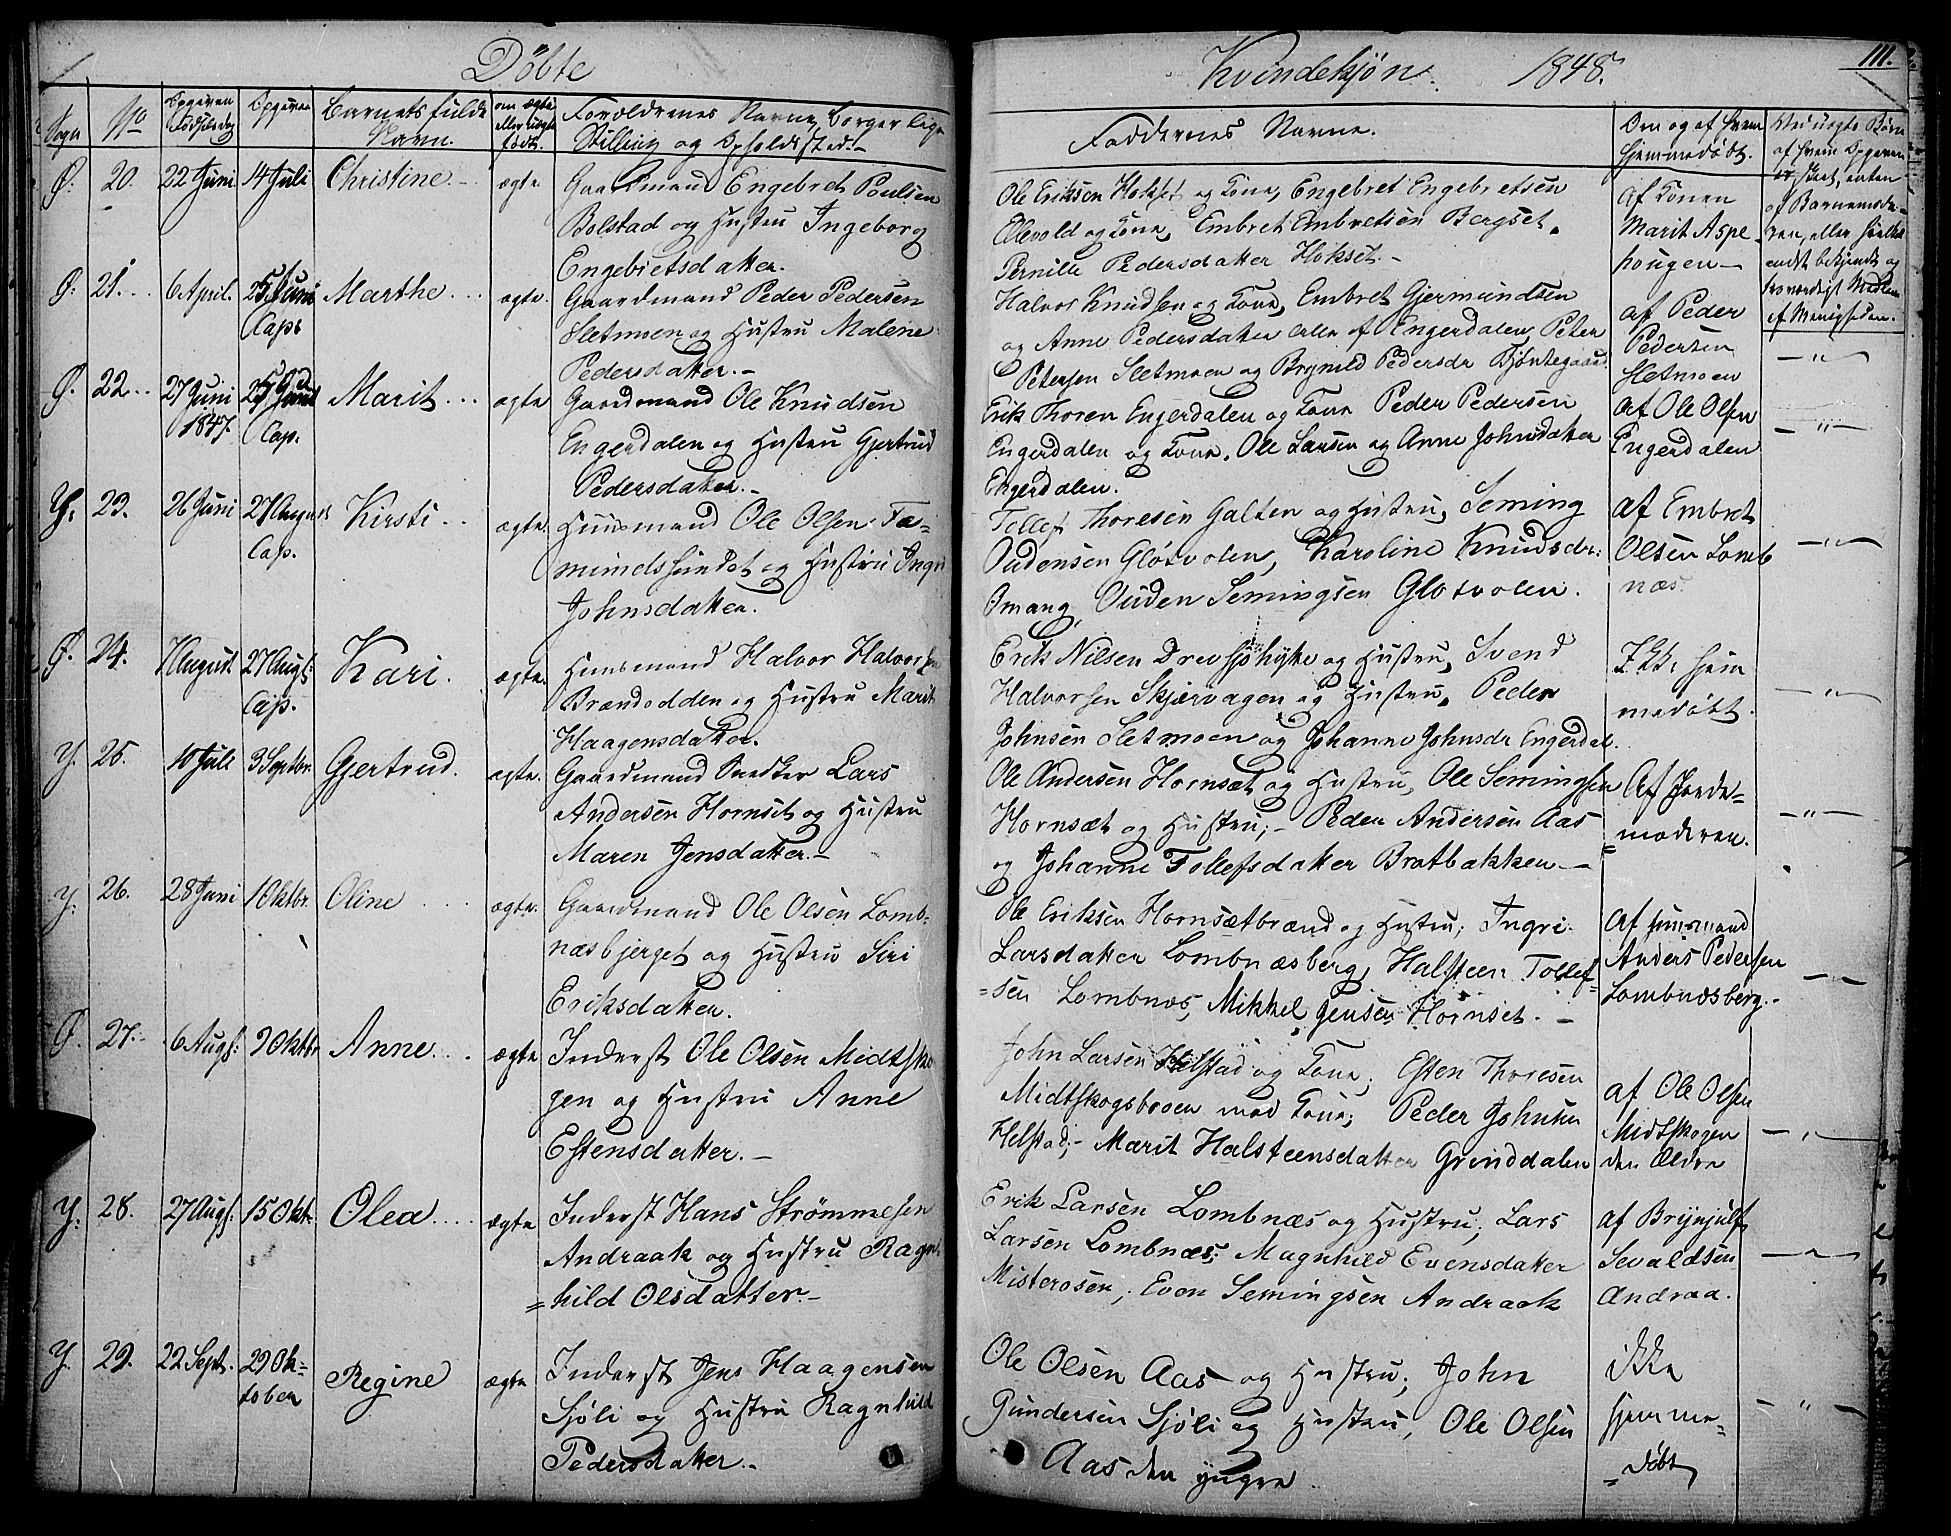 Döbte
Kvindekjön. 1848. 111.
Sogn No Opgiven Födselsdag Opgiven Barnets fulde Navn. om ægte eller uægte födt. Forældrenes Navne, borgerlige Stilling og Opholdssted.-
Faddernes Navne.
Om og af hvem hjemmedöbt.
Ved uægte Börn
af hvem Opgiven
er skeet, enten
af Barnemode-
ren, eller
andet bekjendt og
troværdigt Medlem
af Menigheden.
Ø: 20. 22 Juni 14 Juli Christine.- ægte Gaardmand Engebret Poulsen
Bolstad og Hustru Ingeborg
Engebretsdatter.
Ole Eriksen Hokset og Kone, Engebret Engebretsen
Ellevold og Kone, Embret Embretsen Bergset,
Pernille Pedersdatter Hokset.-
Af Konen
Marit Aspe-
hougen-
Ø: 21. 6 April. 25 Juni Cap: Marthe ægte. Gaardmand Peder Pedersen
Sletmoen og Hustru Malene
Pedersdatter.-
Halvor Knudsen og Kone, Embret Gjermundsen
og Anne Pedersdatter alle af Engerdalen, Peter
Petersen Sletmoen og Brynild Pedersdr
af Peder
Pedersen
Sletmoen
-"-
Ø. 22 27 Juni 1847. 25 Juni Cap. Marit ægte Gaardmand Ole Knudsen
Engerdalen og Hustru Gjertrud
Pedersdatter.-
Erik Thoren Engerdalen og Kone Peder Pedersen
Engerdalen og Kone, Ole Larsen og Anne Johnsdatter
Engerdalen.
Af Ole Olsen
Engerdalen
-"-
Y. 23. 26 Juni 27 August Cap. Kirsti ægte. Huusmand Ole Olsen Fæ-
mundssundet og Hustru Ingri
Johnsdatter.
Tollef Thoresen Galten og Hustru, Seming
Oudensen Glötvolen, Karoline Knudsdr:
Omang, Ouden Semingsen Glötvolen.
af Embret
Olsen Lomb
næs.
-"-
Ø. 24. 1 August. 27 Augs: Cap. Kari. ægte. Huusmand Halvor Halvorsen
Brændodden og Hustru Marit
Haagensdatter.
Erik Nilsen Drevsjöhytte og Hustru, Svend
Halvorsen Skjærvagen og Hustru, Peder
Johnsen Sletmoen og Johanne Johnsdr Engerdal.
Ikke hjem
medöbt.
-"-
Y. 25. 10 Juli 3 Septbr. Gjertrud. ægte. Gaardmand Snedker Lars
Andersen Hornset og Hustru
Maren Jensdatter.-
Ole Andersen Hornsæt og Hustru, Ole Semingsen
Hornsæt og Hustru;- Peder Andersen Aas
og Johanne Tollefsdatter Bratbakken-
Af Jorde=
=moderen.
-"-
Y. 26. 28 Juni 1 Oktbr Oline ægte. Gaardmand Ole Olsen Lomb-
næsbjerget og Hustru Siri
Eriksdatter.
Ole Eriksen Hornsætbrænd og Hustru; Ingri
Larsdatter Lombnæsberg, Halsteen Tollef=
=sen Lombnæs, Mikkel Jensen Hornset.-
af Huusmand
Anders Pedersen
Lombnæsberg.-
-"-
Ø. 27. 6 Augs: 9 Oktbr Anne ægte Inderst Ole Olsen Midtsko
gen og Hustru Anne
Estensdatter.-
John Larsen Helstad og Kone; Esten Thoresen
Midtskogsbroen med Kone; Peder Johnsen
Helstad;- Marit Halsteensdatter Grinddalen
af Ole Olsen
Midtskogen
den Ældre
-"-
Y. 28. 27 Augs: 15 Okt. Olea ægte Inderst Hans Strömmesen
Andraak og Hustru Ragn
=hild Olsdatter.-
Erik Larsen Lombnæs og Hustru; Lars
Larsen Lombnæs; Magnhild Evensdatter
Misterosen; Even Semingsen Andraak
af Brynjulf
Sevaldsen
Andraa.
-"-
Y. 29. 22 Sept. 29 Ok=
tober Regine ægte Inderst Jens Haagensen
Sjöli og Hustru Ragnhild
Pedersdatter.-
Ole Olsen Aas og Hustru; John
Gundersen Sjöli og Hustru, Ole Olsen
Aas den yngre.
ikke
hjemme=
=döbt
-"-